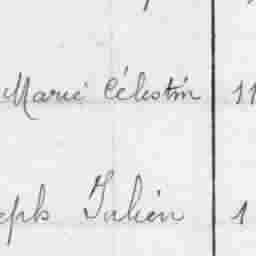 Marie Célestin 11
eph Julien 1